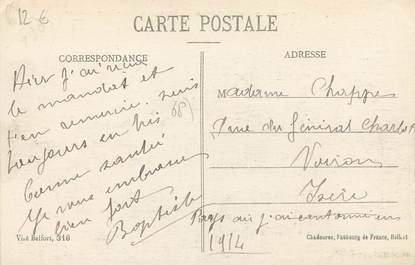 12 €
CARTE POSTALE
CORRESPONDANCE
ADRESSE
Hier j'ai reçu
le mandat et
t'en remercie. suis
toujours en très
bonne santé
Je vous embrasse
bien fort
Baptiste
68
Madame Chappe
rue du Général Charles
Voiron
Isère
Pays où j'ai cantonné en
1914
Visé Belfort, 316
Chadourne, Faubourg de France, Belfort